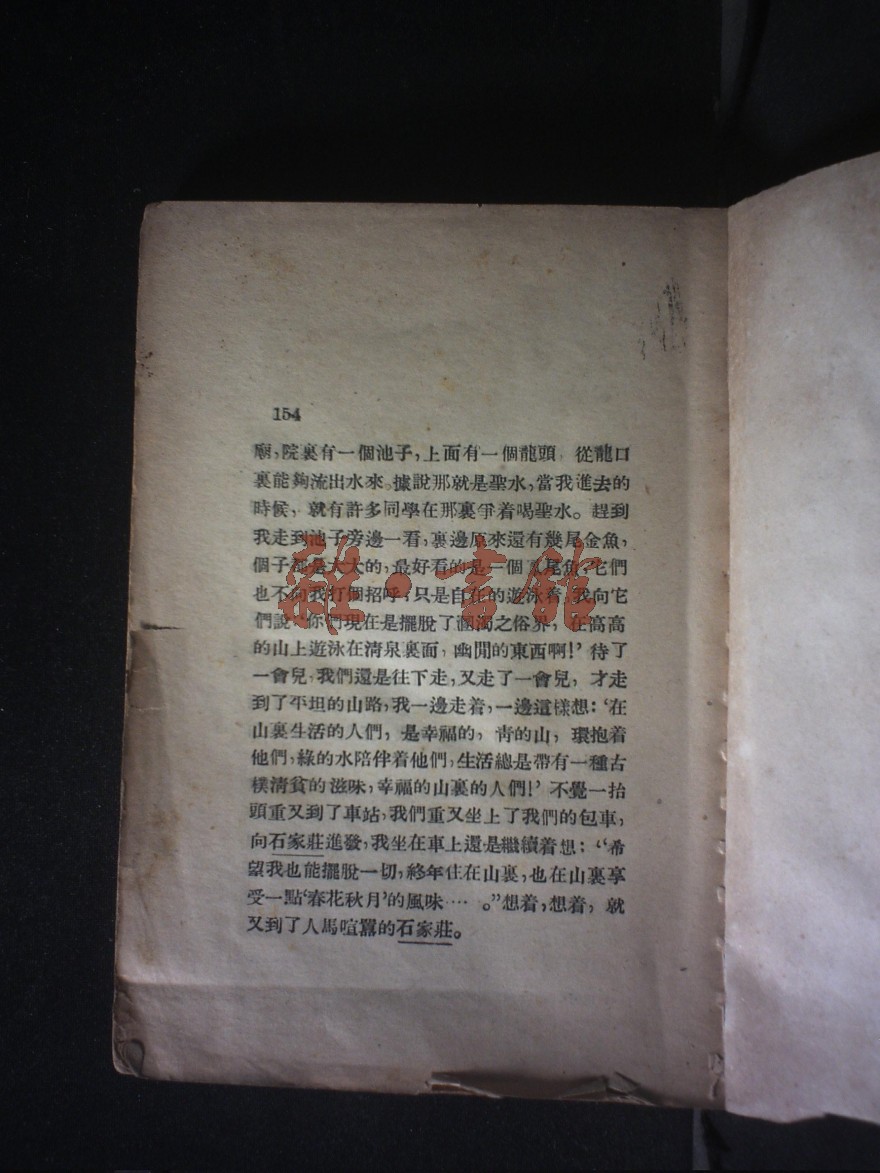 154
廟，院裏有一個池子，上面有一個龍頭 從龍口
裏能夠流出水來。據說那就是聖水，當我進去的
時候，就有許多同學在那裏爭着喝聖水。趕到
我走到池子旁邊一看，裏邊原來還有幾尾金魚，
個子都是大大的，最好看的是一個鳳尾魚，它們
也不向我打個招呼，只是自在的遊泳着 我向它
們說‘你們現在是擺脫了溷濁之俗界，在高高
的山上遊泳在清泉裏面，幽閒的東西啊！’待了
一會兒，我們還是往下走，又走了一會兒，才走
到了平坦的山路，我一邊走着，一邊這樣想：‘在
山裏生活的人們，是幸福的，青的山，環抱着
他們，綠的水陪伴着他們，生活總是帶有一種古
樸清貧的滋味，幸福的山裏的人們！’不覺一抬
頭重又到了車站，我們重又坐上了我們的包車，
向石家莊進發，我坐在車上還是繼續着想：“希
望我也能擺脫一切，終年住在山裏，也在山裏享
受一點‘春花秋月’的風味……。”想着，想着，就
又到了人馬喧囂的石家莊。
雜·書館